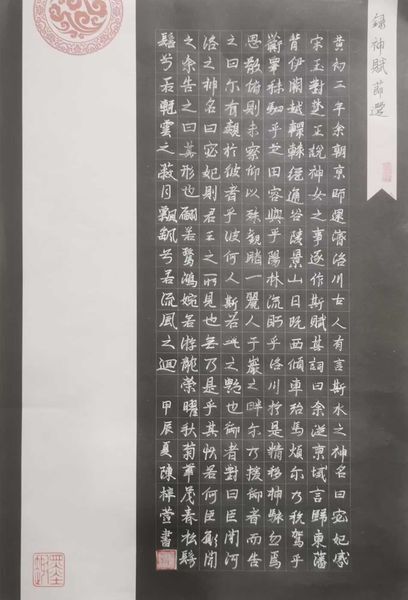 錄神賦節選
黃初三年余朝京師還濟洛川古人有言斯水之神名曰宓妃感
宋玉對楚王說神女之事遂作斯賦其詞曰余從京域言歸東藩
背伊闕越轘轅經通谷陵景山日既西傾車殆馬煩尔乃稅駕乎
蘅皋秣駟乎芝田容與乎陽林流眄乎洛川於是精移神駭忽焉
思散俯則未察仰以殊觀睹一麗人于巖之畔尔乃援御者而告
之曰尔有覿於彼者乎彼何人斯若此之艷也御者對曰臣聞河
洛之神名曰宓妃則君王之所見也無乃是乎其狀若何臣願聞
之余告之曰其形也翩若驚鴻婉若游龍榮曜秋菊華茂春松髣
髴兮若輕雲之蔽月飄颻兮若流風之迴 甲辰夏陳梓萱書